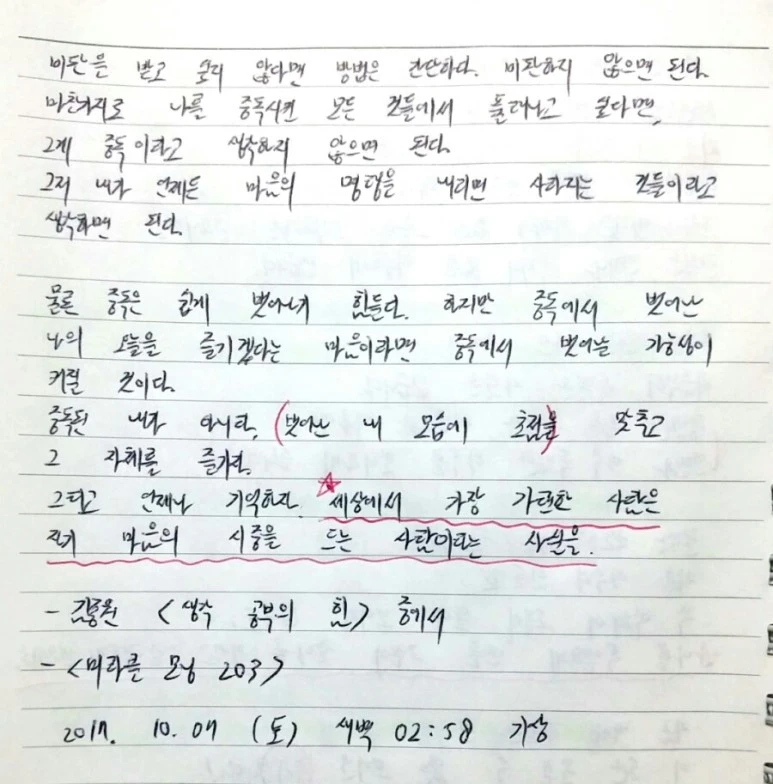 비판을 받고 싶지 않다면 방법은 간단하다. 비판하지 않으면 된다.
마찬가지로 나를 중독시킨 모든 것들에서 풀려나고 싶다면,
그게 중독이라고 생각하지 않으면 된다.
그저 내가 언제든 마음의 명령을 내리면 사라지는 것들이라고
생각하면 된다.
물론 중독은 쉽게 벗어나기 힘들다. 하지만 중독에서 벗어난
나의 오늘을 즐기겠다는 마음이라면 중독에서 벗어날 가능성이
커질 것이다.
중독된 내가 아니라, (벗어난 내 모습에 초점을) 맞추고
그 자체를 즐기라.
그리고 언제나 기억하자. ☆세상에서 가장 가련한 사람은
자기 마음의 시중을 드는 사람이라는 사실을.
- 김종원 <생각 공부의 힘> 중에서
- <미라클 모닝 203>
2017. 10. 07 (토) 새벽 02:58 기상